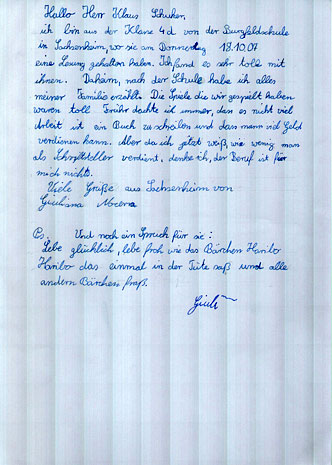 Hallo Herr Klaus Schuker
ich bin aus der Klasse 4d von der Burgfeldschule
in Sachsenheim, wo sie am Donnerstag 18.10.07
eine Lesung gehalten haben. Ich fand es sehr toll mit
ihnen. Daheim, nach der Schule habe ich alles
meiner Familie erzählt. Die Spiele die wir gespielt haben
waren toll. Früher dachte ich immer, dass es nicht viel
Arbeit ist ein Buch zu schreiben und dass mann viel Geld
verdienen kann. Aber da ich jetzt weiß, wie wenig man
als Schriftsteller verdient, denke ich, der Beruf ist für
mich nichts.
Viele Grüße aus Sachsenheim von
Giuliana
Ps. Und noch ein Spruch für sie:
Lebe glücklich, lebe froh wie das Bärchen Haribo
Haribo das einmal in der Tüte saß und alle
andern Bärchen fraß.
Giuli